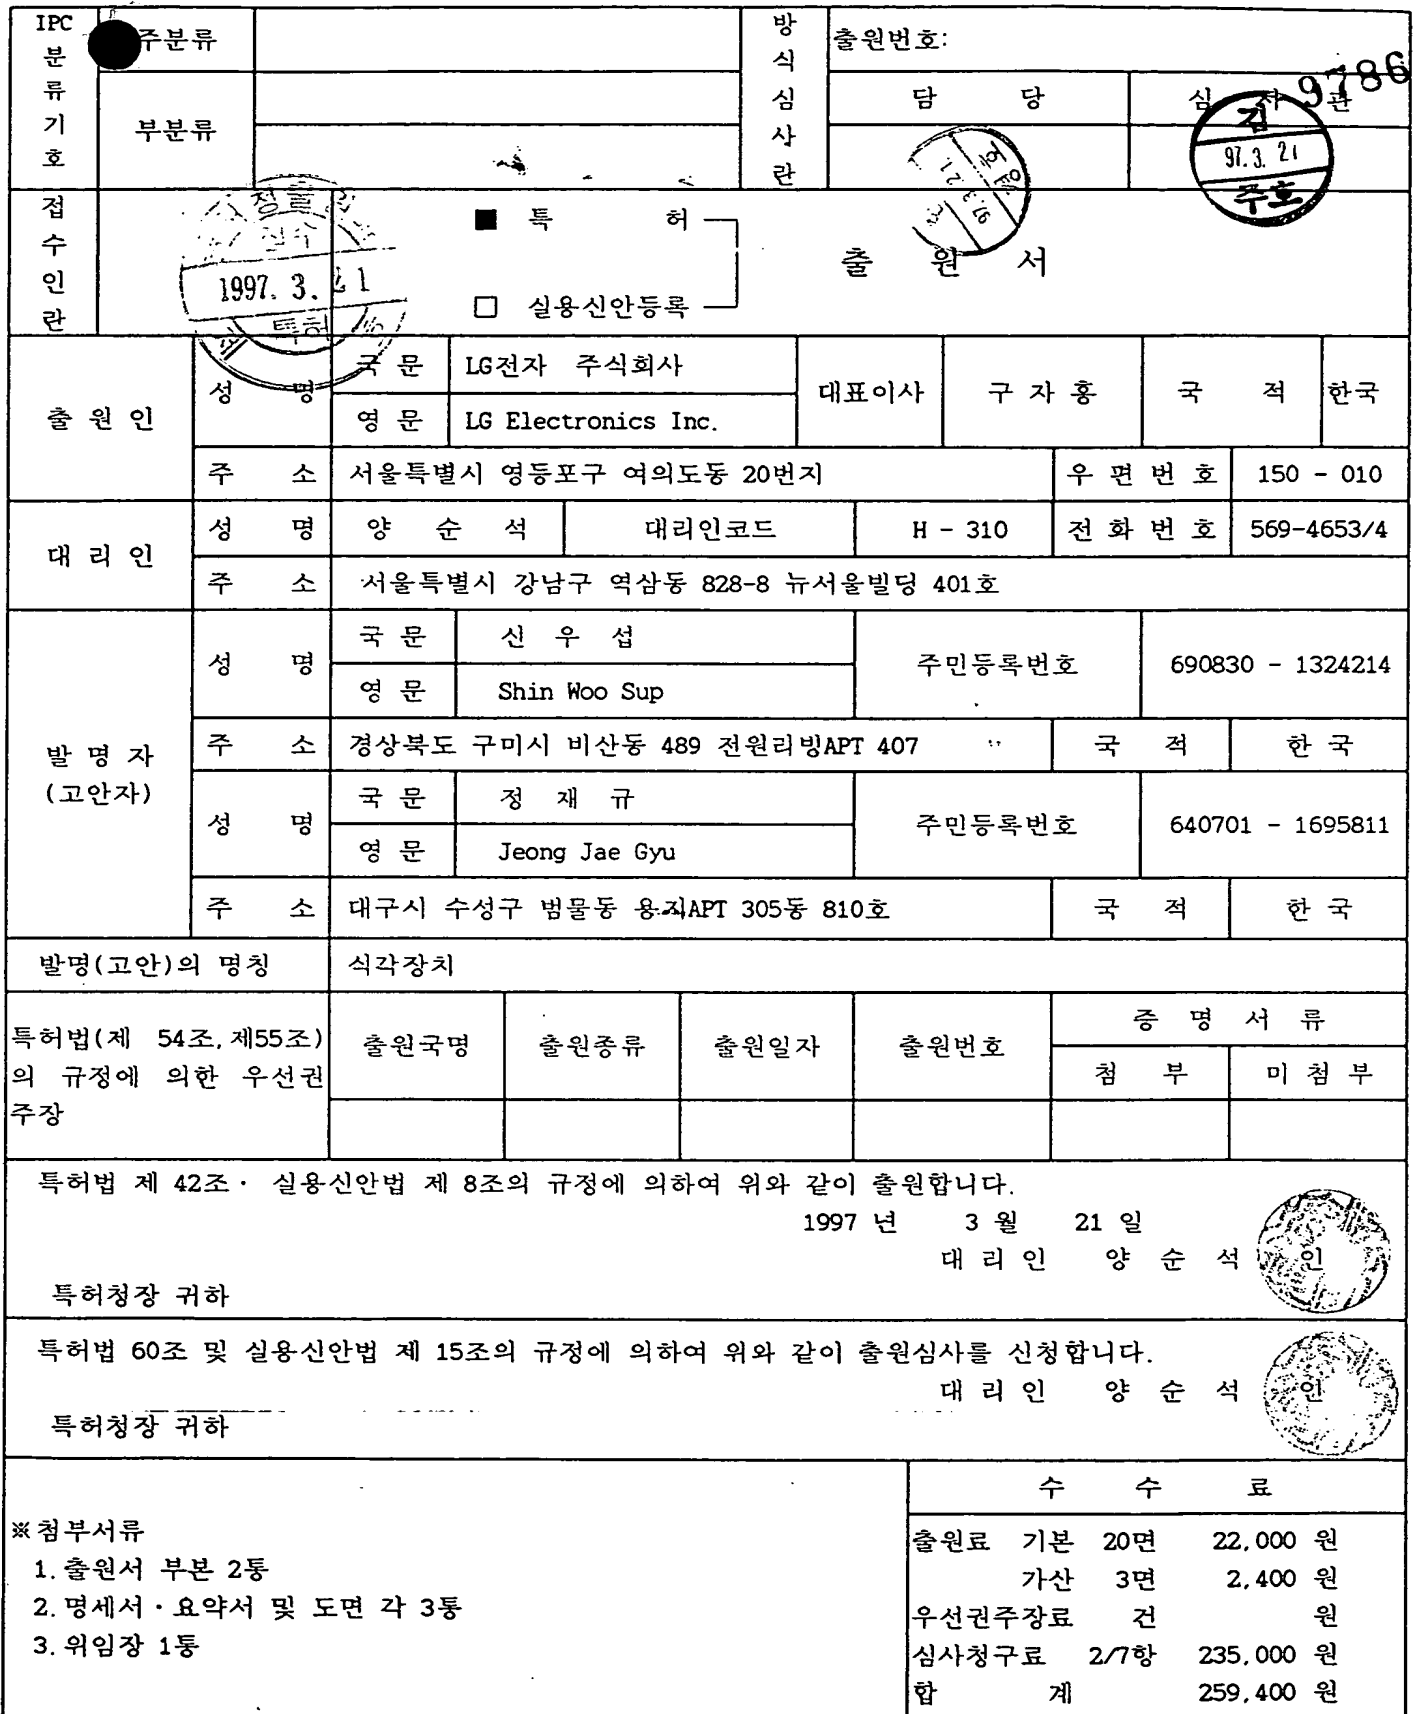 IPC 분류기호
주분류
부분류
방식심사란
출원번호:
9786
담 당
심 사 관
김
97. 3. 21
주호
접수인란
1997. 3. 21
특허
■ 특 허
□ 실용신안등록
출 원 서
출 원 인
성 명
국 문 LG전자 주식회사
영 문 LG Electronics Inc.
대표이사 구 자 홍 국 적 한국
주 소 서울특별시 영등포구 여의도동 20번지 우 편 번 호 150 - 010
대 리 인
성 명 양 순 석 대리인코드 H - 310 전 화 번 호 569-4653/4
주 소 서울특별시 강남구 역삼동 828-8 뉴서울빌딩 401호
발 명 자
(고안자)
성 명
국 문 신 우 섭
영 문 Shin Woo Sup
주민등록번호 690830 - 1324214
주 소 경상북도 구미시 비산동 489 전원리빙APT 407 국 적 한 국
성 명
국 문 정 재 규
영 문 Jeong Jae Gyu
주민등록번호 640701 - 1695811
주 소 대구시 수성구 범물동 용지APT 305동 810호 국 적 한 국
발명(고안)의 명칭 식각장치
특허법(제 54조,제55조)
의 규정에 의한 우선권
주장
출원국명 출원종류 출원일자 출원번호
증 명 서 류
첨 부 미 첨 부
특허법 제 42조· 실용신안법 제 8조의 규정에 의하여 위와 같이 출원합니다.
1997 년 3 월 21 일
대 리 인 양 순 석 인
특허청장 귀하
특허법 60조 및 실용신안법 제 15조의 규정에 의하여 위와 같이 출원심사를 신청합니다.
대 리 인 양 순 석 인
특허청장 귀하
※첨부서류
1.출원서 부본 2통
2.명세서·요약서 및 도면 각 3통
3.위임장 1통
수 수 료
출원료 기본 20면 22,000 원
가산 3면 2,400 원
우선권주장료 건 원
심사청구료 2/7항 235,000 원
합 계 259,400 원